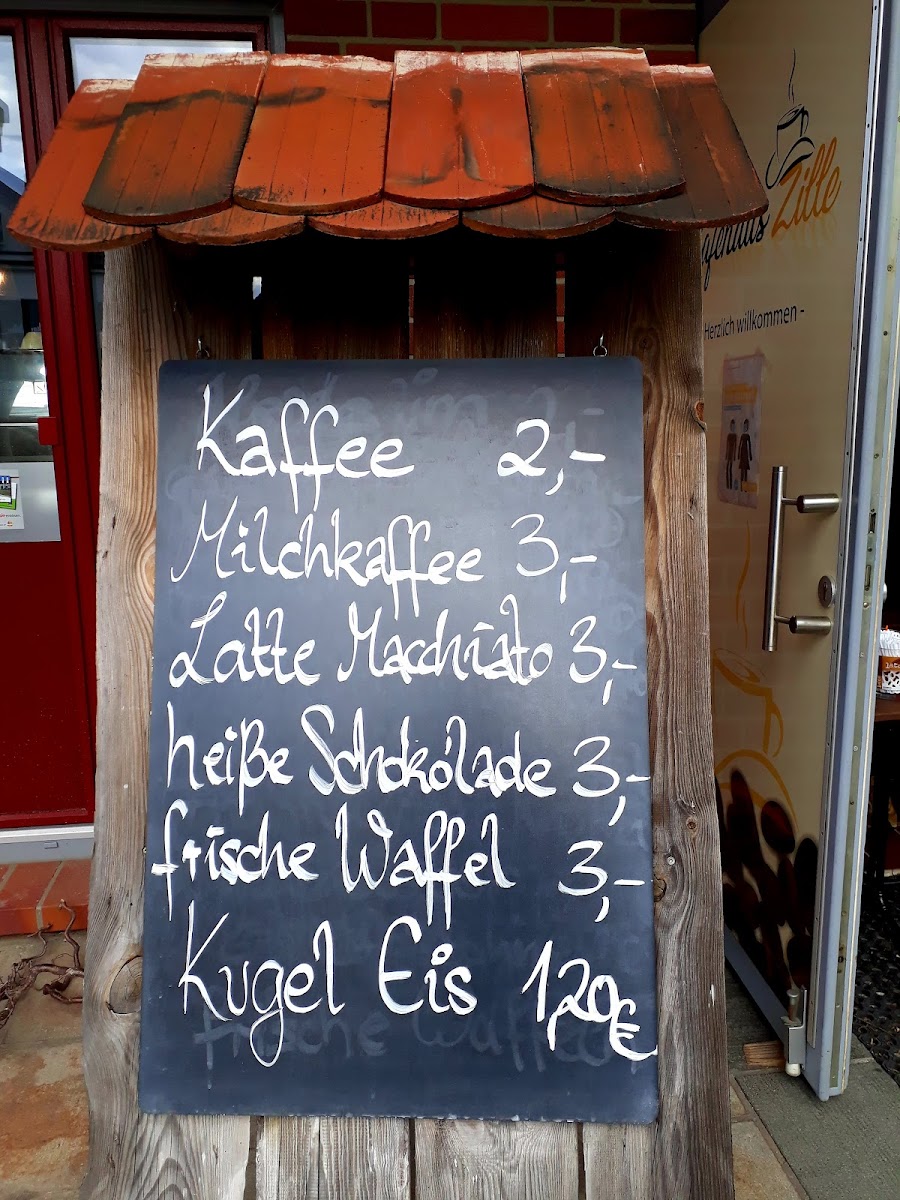 Zille
Herzlich willkommen -
Kaffee 2,-
Milchkaffee 3,-
Latte Macchiato 3,-
heiße Schokolade 3,-
frische Waffel 3,-
Kugel Eis 1,20€